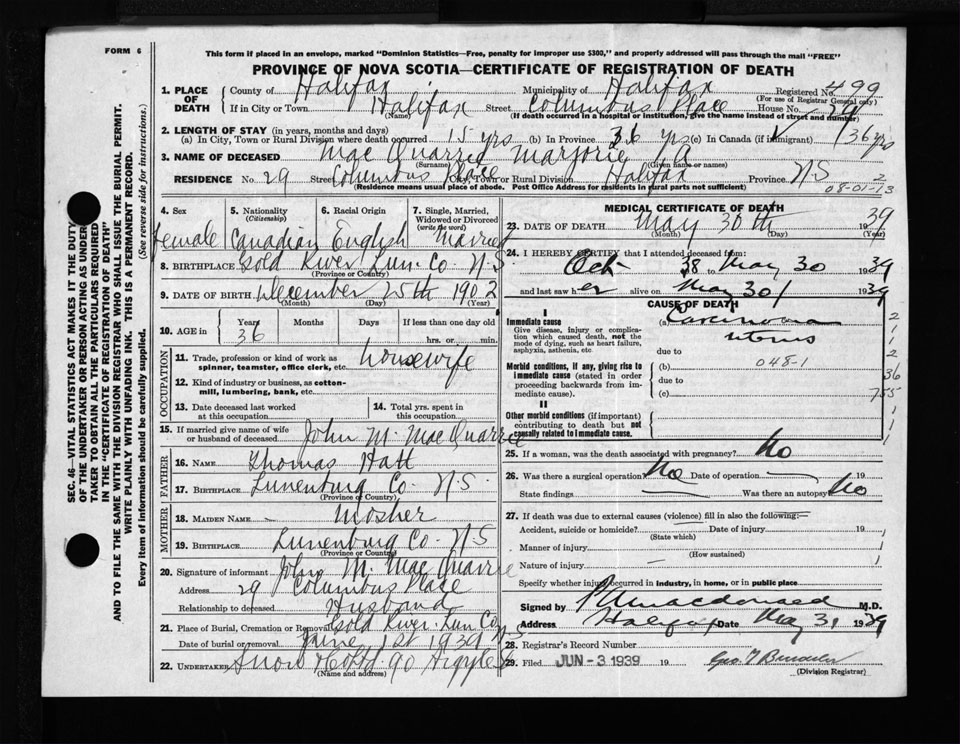 FORM 6
This form if placed in an envelope, marked "Dominion Statistics—Free, penalty for improper use $300," and properly addressed will pass through the mail "FREE"
PROVINCE OF NOVA SCOTIA—CERTIFICATE OF REGISTRATION OF DEATH
1. PLACE OF DEATH County of Halifax Municipality of Halifax Registered No. 499
(For use of Registrar General only)
If in City or Town Halifax Street Columbus Place House No. 29
(Name) (If death occurred in a hospital or institution, give the name instead of street and number)
2. LENGTH OF STAY (in years, months and days)
(a) In City, Town or Rural Division where death occurred 15 yrs (b) In Province 36 yrs (c) In Canada (if immigrant) 36 yrs
3. NAME OF DECEASED MacQuarrie Marjorie A
(Surname) (Given name or names)
RESIDENCE No. 29 Street Columbus Place City, Town or Rural Division Halifax Province N S
(Residence means usual place of abode. Post Office Address for residents in rural parts not sufficient)
2
08-01-13
4. Sex Female
5. Nationality (Citizenship) Canadian
6. Racial Origin English
7. Single, Married, Widowed or Divorced (write the word) Married
8. BIRTHPLACE Gold River Lun. Co. N.S.
(Province or Country)
9. DATE OF BIRTH December 25th 1902
(Month) (Day) (Year)
10. AGE in Years 36 Months Days If less than one day hrs. or min.
OCCUPATION
11. Trade, profession or kind of work as spinner, teamster, office clerk, etc. housewife
12. Kind of industry or business, as cotton-mill, lumbering, bank, etc.
13. Date deceased last worked at this occupation
14. Total yrs. spent in this occupation
15. If married give name of wife or husband of deceased John M. MacQuarrie
FATHER
16. NAME Thomas Hatt
17. BIRTHPLACE Lunenburg Co. N.S.
(Province or Country)
MOTHER
18. MAIDEN NAME — Mosher
19. BIRTHPLACE Lunenburg Co. N S
(Province or Country)
20. Signature of informant John M. MacQuarrie
Address 29 Columbus Place
Relationship to deceased Husband
21. Place of Burial, Cremation or Removal Gold River. Lun Co. N S
Date of burial or removal June 1st 1939
22. UNDERTAKER Snow & Co Ltd 90 Argyle St
(Name and address)
MEDICAL CERTIFICATE OF DEATH
23. DATE OF DEATH May 30th 1939
(Month) (Day) (Year)
24. I HEREBY CERTIFY that I attended deceased from:
Oct 38 to May 30 1939
and last saw her alive on May 30 1939
CAUSE OF DEATH
I
Immediate cause (a) Carcinoma uterus
Give disease, injury or complication which caused death, not the mode of dying, such as heart failure, asphyxia, asthenia, etc
due to
Morbid conditions, if any, giving rise to immediate cause (stated in order proceeding backwards from immediate cause).
(b) 048-1
due to
(c)
II
Other morbid conditions (if important) contributing to death but not causally related to immediate cause.
2
1
1
2
36
755
25. If a woman, was the death associated with pregnancy? No
26. Was there a surgical operation? No Date of operation — 19
State findings — Was there an autopsy? No
27. If death was due to external causes (violence) fill in also the following:—
Accident, suicide or homicide? Date of injury 19
(State which)
Manner of injury
(How sustained)
Nature of injury —
Specify whether injury occurred in industry, in home, or in public place
Signed by Macdonald M.D.
Address Halifax Date May 31 1939
28. Registrar's Record Number
29. Filed JUN - 3 1939 19
(Division Registrar)
SEC. 46—VITAL STATISTICS ACT MAKES IT THE DUTY
OF THE UNDERTAKER OR PERSON ACTING AS UNDERTAKER TO OBTAIN ALL THE PARTICULARS REQUIRED
IN THE "CERTIFICATE OF REGISTRATION OF DEATH"
AND TO FILE THE SAME WITH THE DIVISION REGISTRAR WHO SHALL ISSUE THE BURIAL PERMIT.
WRITE PLAINLY WITH UNFADING INK. THIS IS A PERMANENT RECORD.
Every item of information should be carefully supplied. (See reverse side for instructions.)